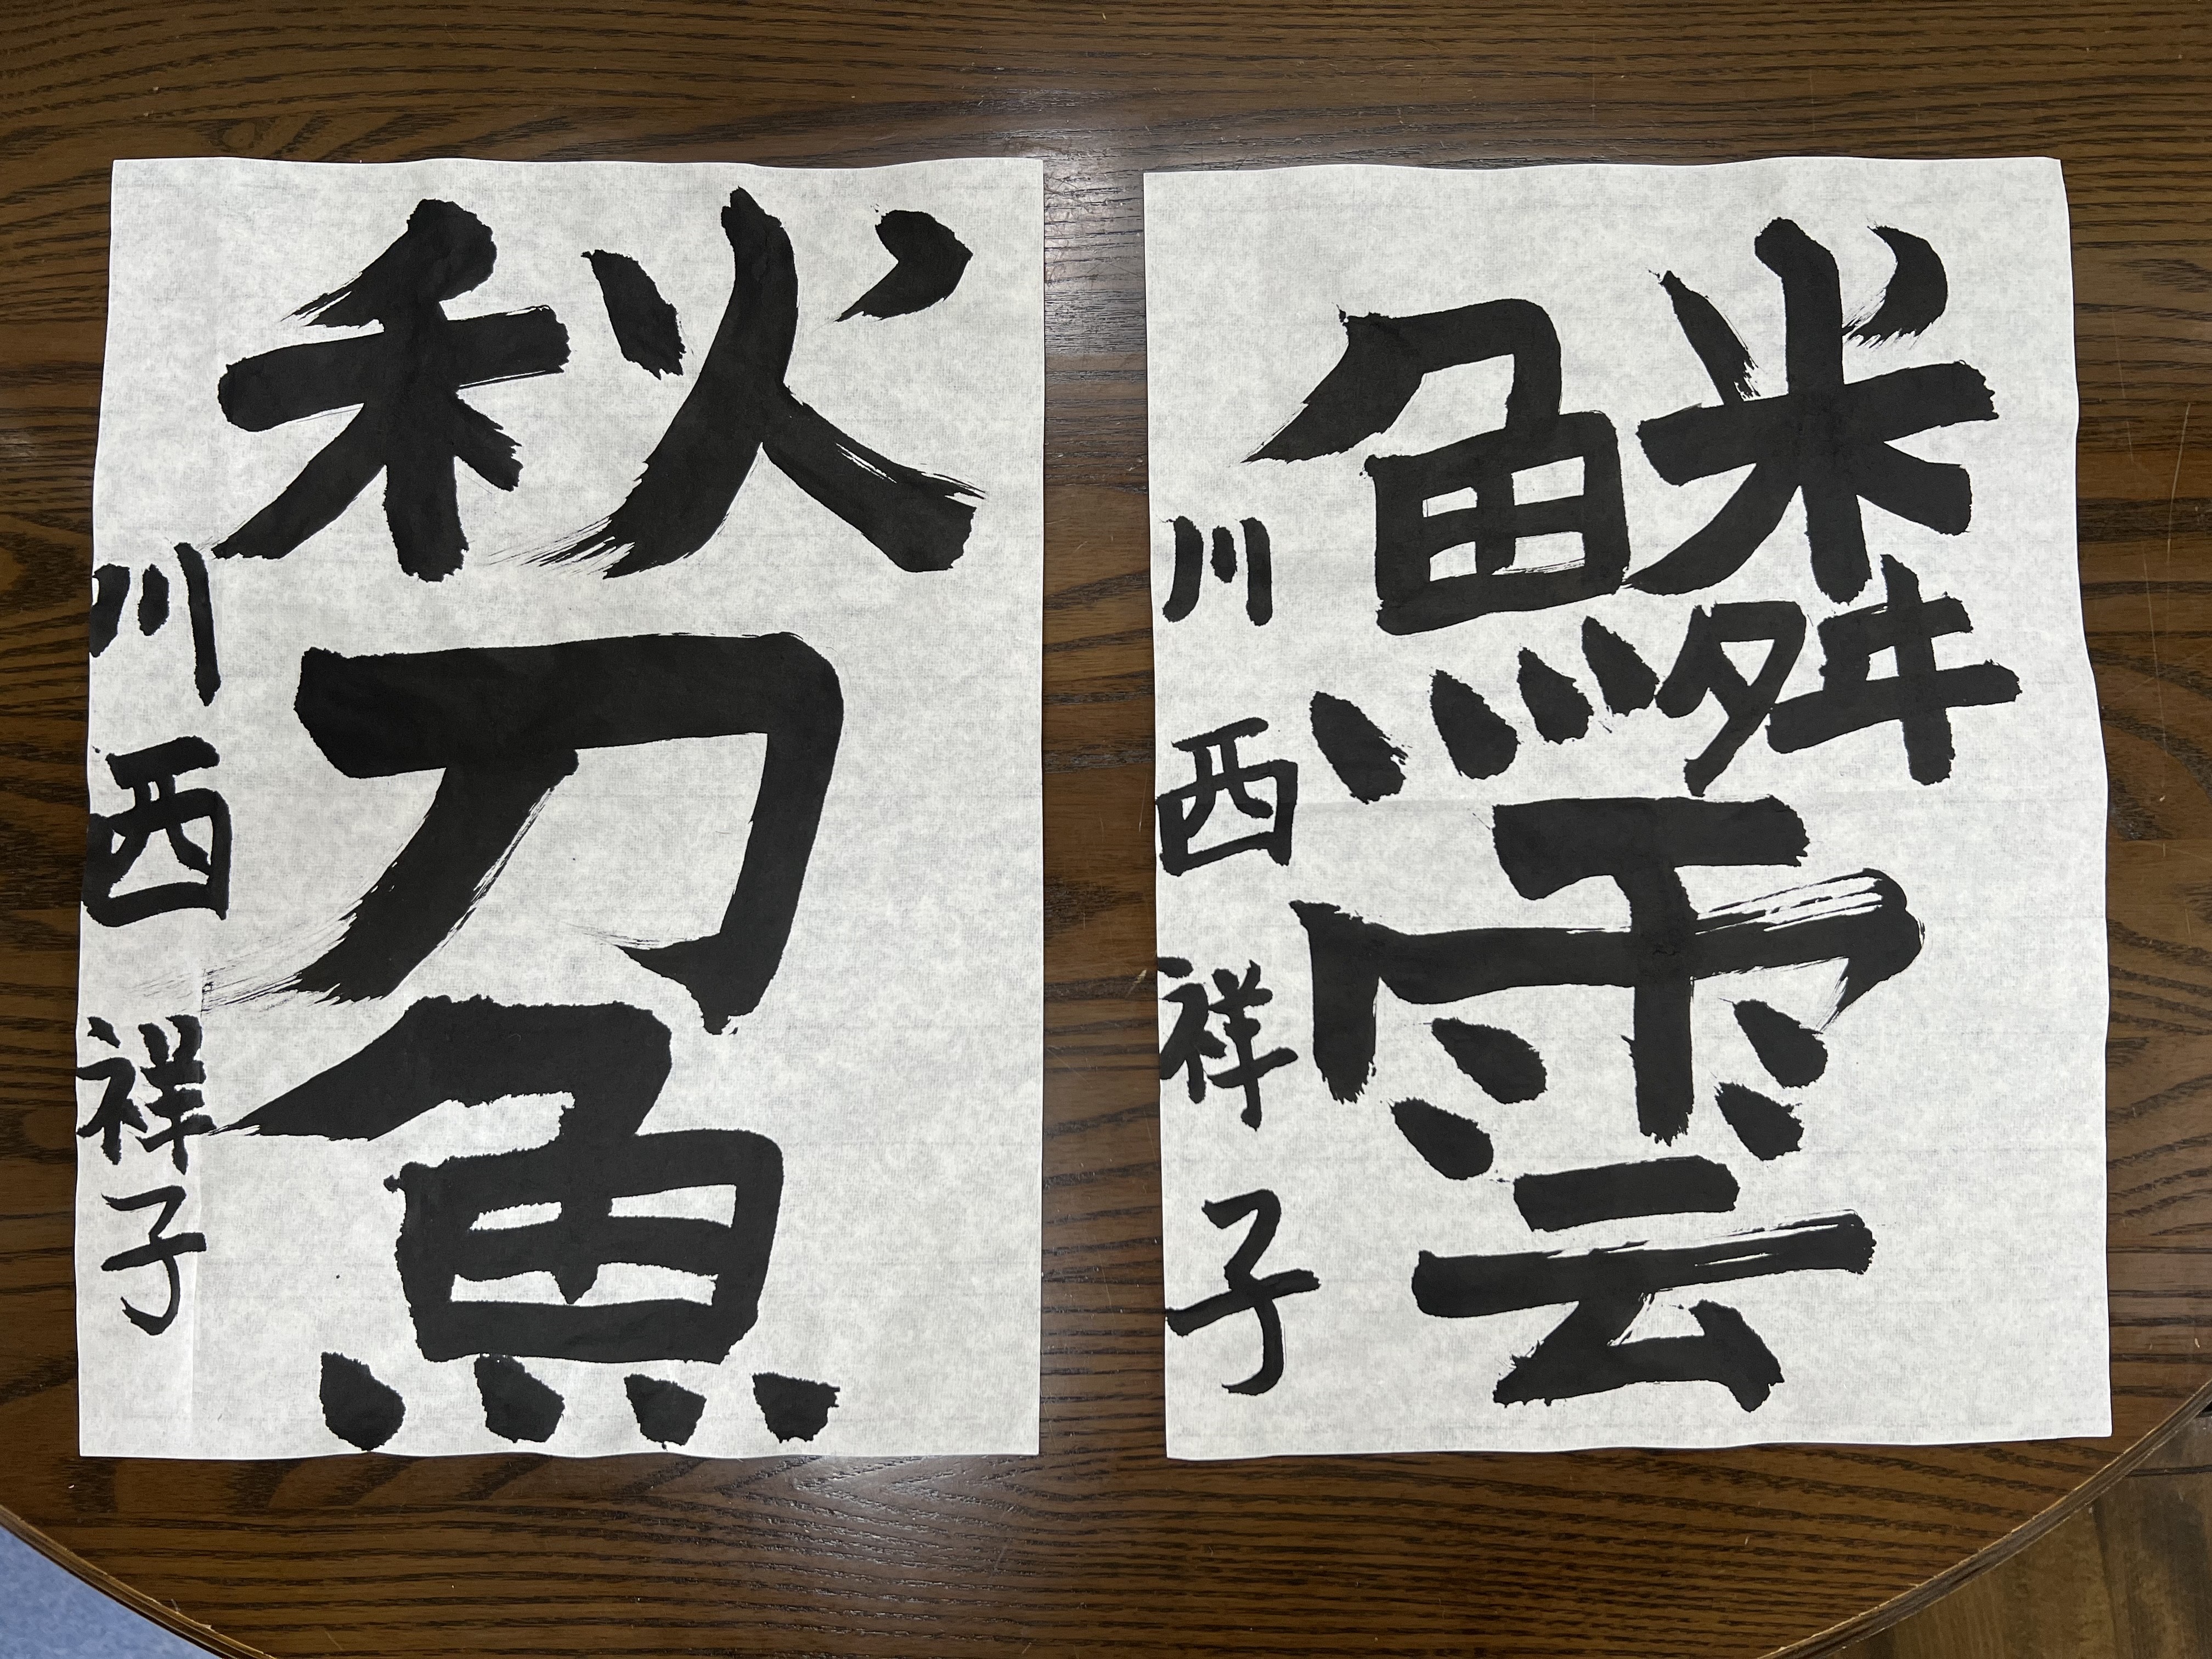 鱗雲
川西祥子
秋刀魚
川西祥子